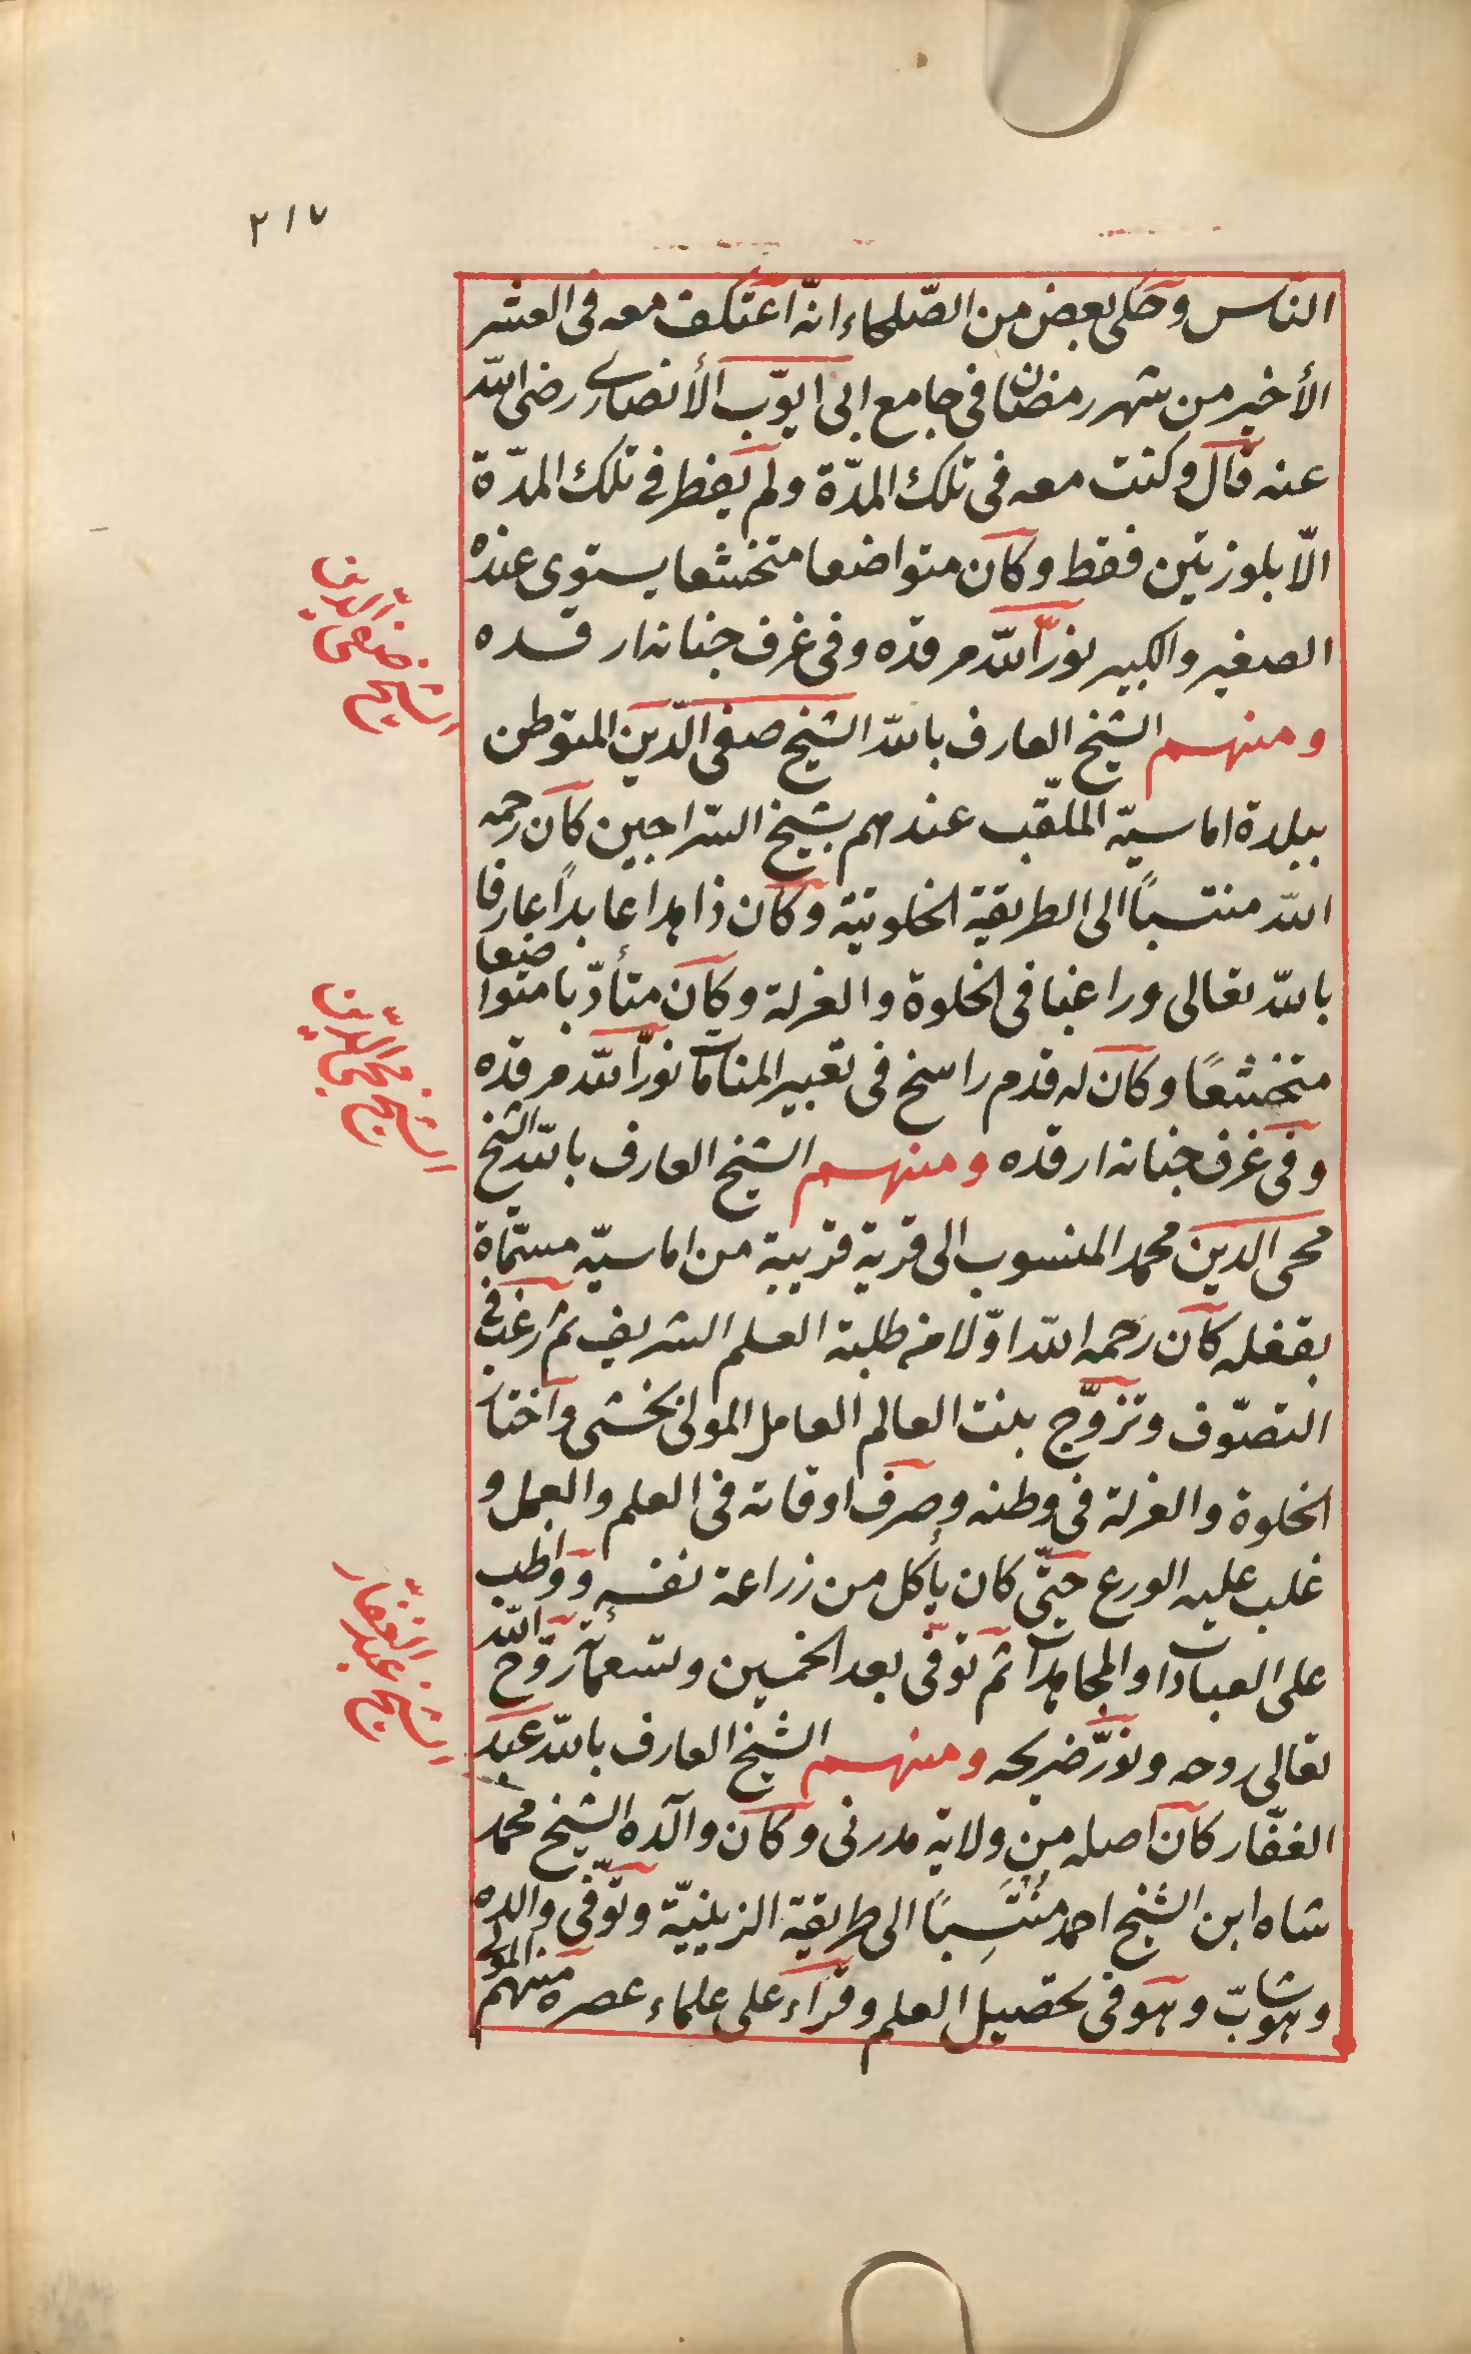 ٢١٧
النّاس وحكى بعض من الصّلحاء انّه اعتكف معه فى العشر
الأخير من شهر رمضان فى جامع ابى ايّوب الأنصارى رضى الله
عنه قال وكنت معه فى تلك المدّة ولم يفطر فى تلك المدّة
الّا بلوزتين فقط وكان متواضعا متخشعا يستوى عنده
الصغير والكبير نوّر الله مرقده وفى غرف جنانه ارقده
ومنهم الشيخ العارف بالله الشيخ صفى الدّين المتوطن
ببلدة اماسيّه الملقّب عندهم بشيخ السّراجين كان رحمه
الله منتسبًا الى الطريقية الخلوتية وكان ذاهدا عابدًا عارفا
بالله تعالى وراغبا فى الخلوة والعزلة وكان متأدّبا متواضعا
متخشعًا وكان له قدم راسخ فى تعبير المنامات نوّر الله مرقده
وفى غرف جنانه ارقده ومنهم الشيخ العارف بالله الشيخ
محى الدين محمد المنسوب الى قرية قريبة من اماسيّه مسمّاة
بقفله كان رحمه الله اوّلا من طلبة العلم الشريف ثم رغب فى
التصوّف وتزوّج بنت العالم العامل المولى بخشى واختار
الخلوة والعزلة فى وطنه وصرف اوقاته فى العلم والعمل و
غلب عليه الورع حتّى كان يأكل من زراعة نفسه وواظب
على العبادات والمجاهدات ثم توفى بعد الخمسين وتسعمائة روّح الله
تعالى روحه ونوّر ضريحه ومنهم الشيخ العارف بالله عبد
الغفّار كان اصله من ولاية مدرنى وكان والده الشيخ محمد
شاه ابن الشيخ احمد مُنْتَسِبًا الى طريقة الزينيّة وتوفّى والده
وهو شابّ وهو فى تحصيل العلم وقراء على علماء عصره منهم المولى
الشيخ صفى الدين
الشيخ محى الدين
الشيخ عبد الغفّار